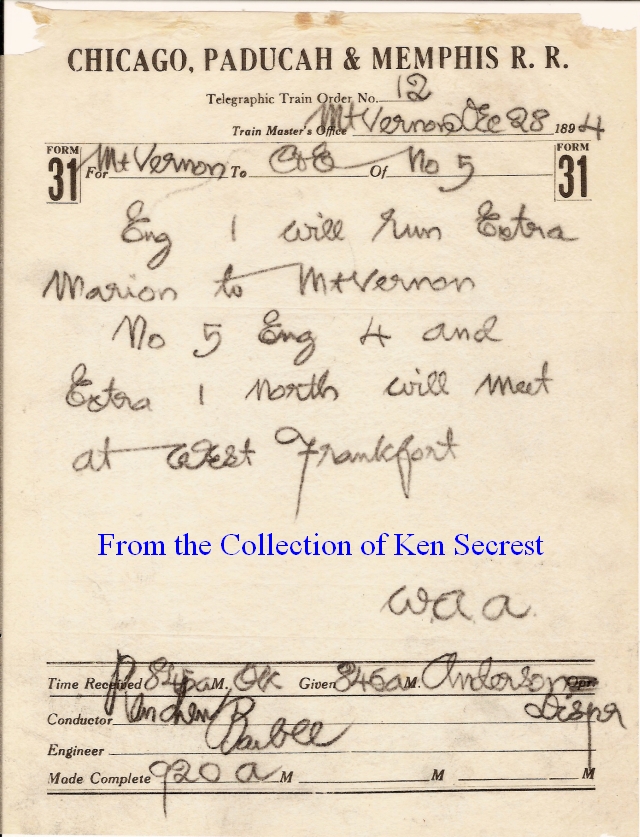 CHICAGO, PADUCAH & MEMPHIS R. R.
Telegraphic Train Order No. 12
Train Master's Office Mt Vernon Dec 28 1894
FORM 31 For Mt Vernon To C&E Of No 5 FORM 31
Eng 1 will run Extra
Marion to Mt Vernon
No 5 Eng 4 and
Extra 1 North will meet
at West Frankfort
From the Collection of Ken Secrest
W.A.A.
Time Received 845 a M. OK Given 846 a M. Anderson Opr.
Dispr
Conductor
Engineer Barbee
Made Complete 920 a M M M